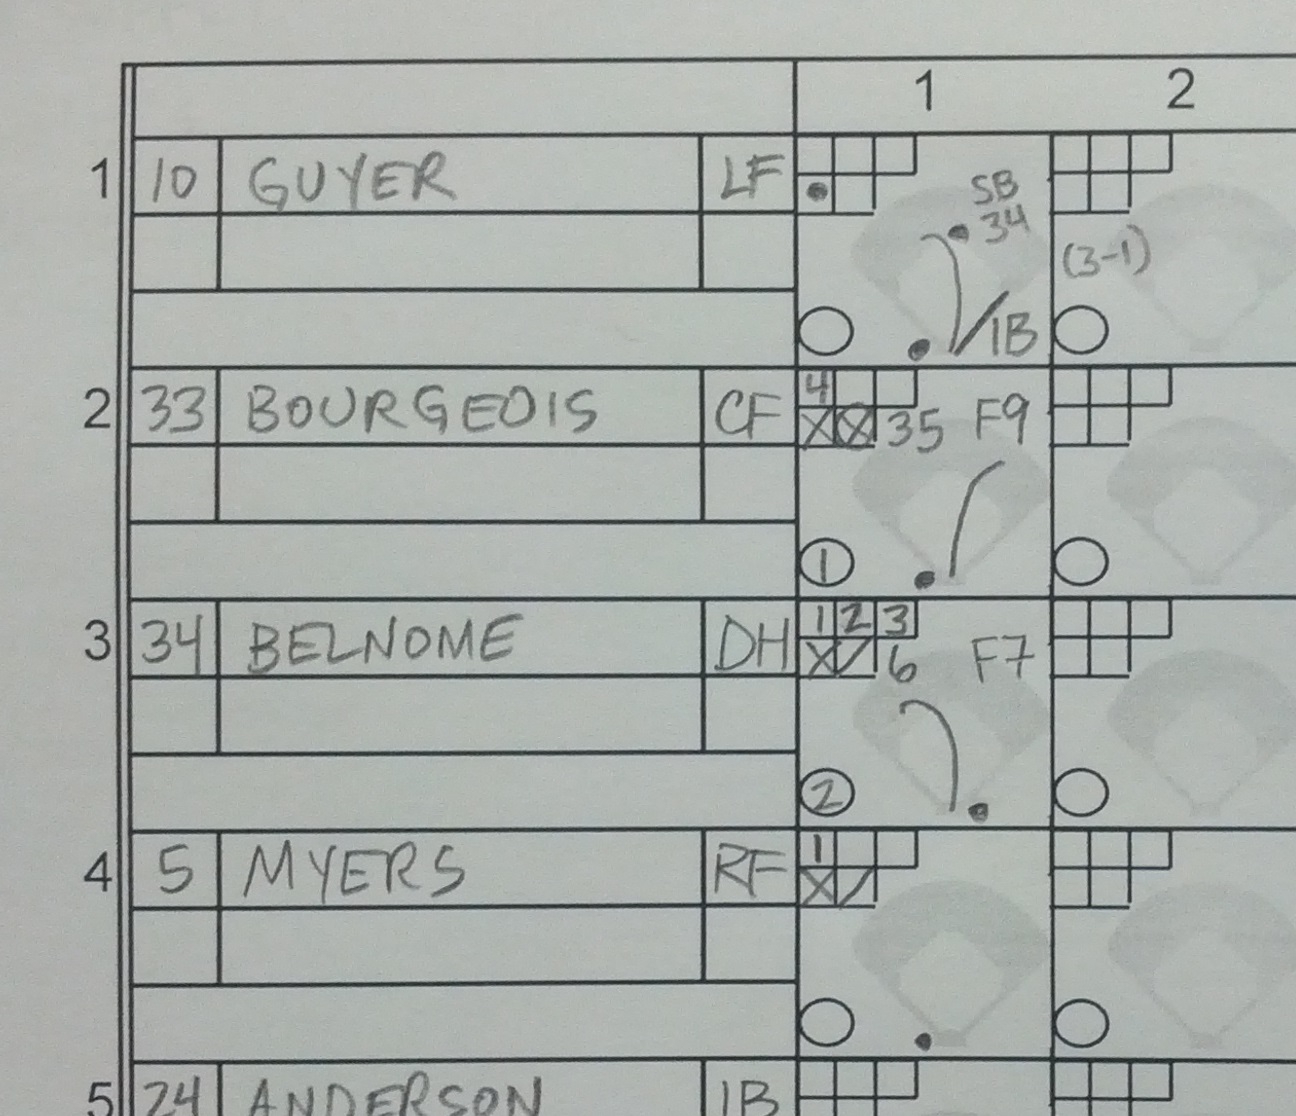 1 2
1 10 GUYER LF
SB
34
(3-1)
1B
2 33 BOURGEOIS CF 4
35 F9
1
3 34 BELNOME DH 1 2 3
6 F7
2
4 5 MYERS RF 1
5 24 ANDERSON 1B